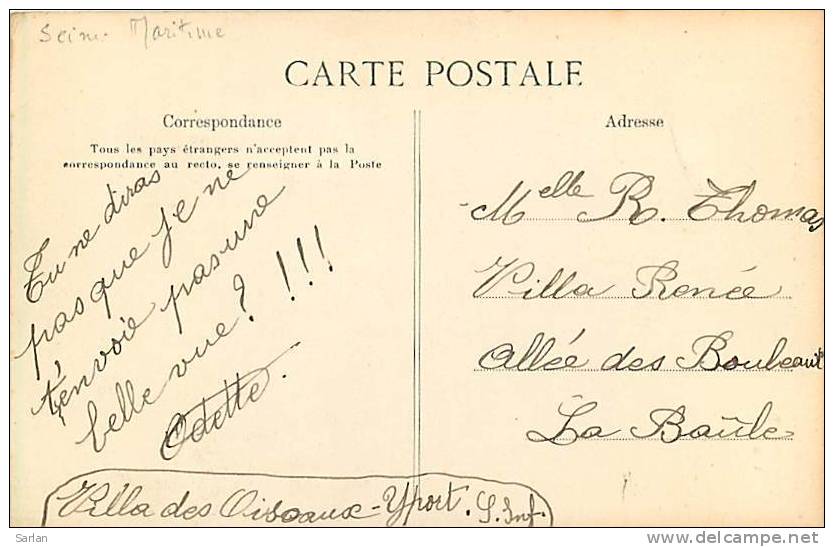 Seine Maritime
CARTE POSTALE
Correspondance
Tous les pays étrangers n'acceptent pas la
correspondance au recto, se renseigner à la Poste
Tu ne diras
pas que je ne
t'envoie pas une
belle vue? !!!
Odette.
Villa des Oiseaux - Yport. S. Inf.
Adresse
Melle R. Thomas
Villa Renée
Allée des
La Baûle
Sarlan
delcampe.net